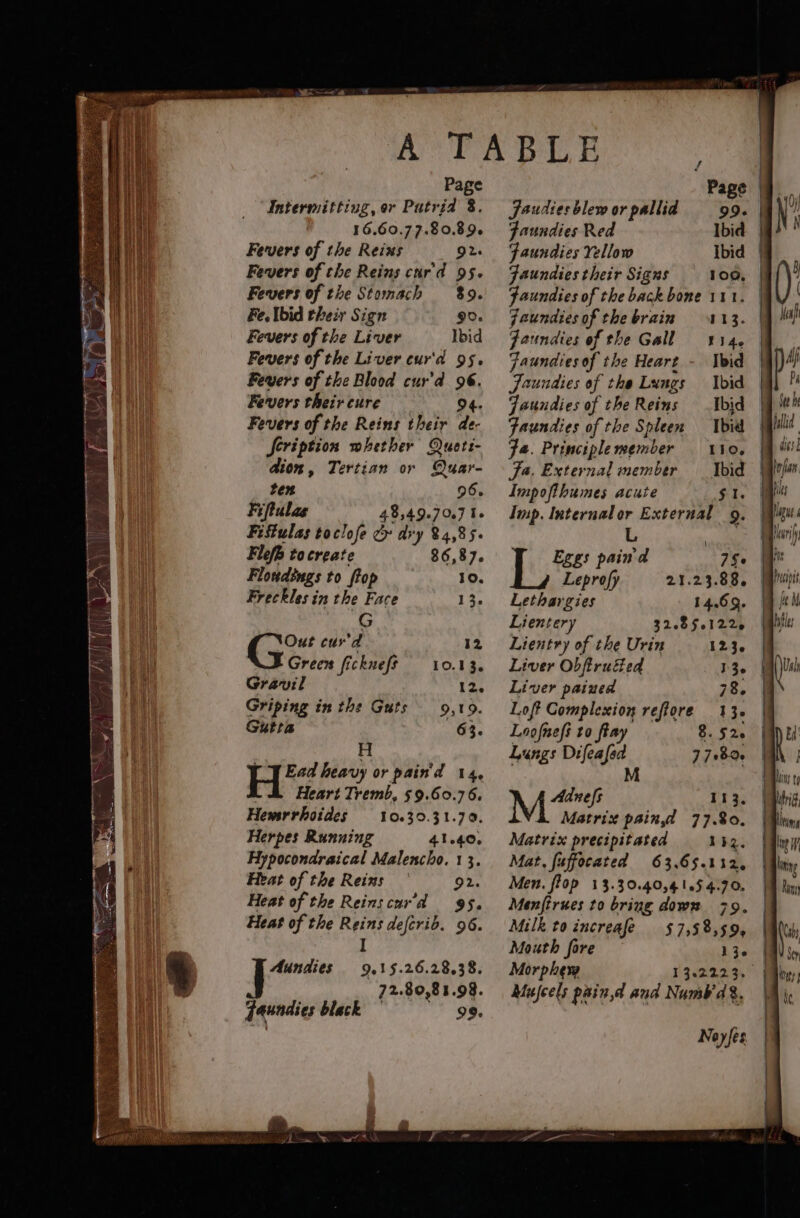 A TABLE
Page
Intermitting, or Putrid 8.
16.60.77.80.89.
Fevers of the Reins 92.
Fevers of the Reins cur'd 95.
Fevers of the Stomach 89.
Fe. Ibid their Sign 90.
Fevers of the Liver Ibid
Fevers of the Liver cur'd 95.
Fevers of the Blood cur'd 96.
Fevers their cure 94.
Fevers of the Reins their de-
ſcription whether Quoti-
dion, Tertian or Quar-
ten 96.
Fiſtulas 48,49.70.71.
Fiſtulas to cloſe & dry 84,85.
Fleſh to create 86,87.
Flowdings to ſtop 10.
Freckles in the Face 13.
G
GOut cur'd 12
Green ſickneſs 10.13.
Gravil 12.
Griping in the Guts 9,19.
Gutta 63.
H
HEad heavy or pain'd 14.
Heart Tremb, 59.60.76.
Hemrrhoides 10.30.31.70.
Herpes Running 41.40.
Hypocondraical Malencho. 13.
Heat of the Reins 92.
Heat of the Reins cur'd 95.
Heat of the Reins deſcrib. 96.
I
JAundies 9.15.26.28.38.
72.80,81.98.
Jaundies black 99.
Page
Jaudies blew or pallid 99.
Jaundies Red Ibid
Jaundies Yellow Ibid
Jaundies their Signs 100.
Jaundies of the back bone 111.
Jaundies of the brain 113.
Jaundies of the Gall 114.
Jaundies of the Heart - Ibid
Jaundies of the Lungs Ibid
Jaundies of the Reins Ibid
Jaundies of the Spleen Ibid
Ja. Principle member 110.
Ja. External member Ibid
Impoſthumes acute 51.
Imp. Internal or External 9.
L
LEggs pain'd 75.
Leproſy 21.23.88.
Lethargies 14.69.
Lientery 32.85.122.
Lientry of the Urin 123.
Liver Obſtructed 13.
Liver pained 78.
Loſt Complexion reſtore 13.
Looſneſs to ſtay 8.52.
Lungs Diſeaſed 77.80.
M
MAdneſs 113.
Matrix pain,d 77.80.
Matrix precipitated 132.
Mat. ſuffocated 63.65.132.
Men. ſtop 13.30.40,41.54.70.
Menſtrues to bring down 79.
Milk to increaſe 57,58,59.
Mouth ſore 13.
Morphew 13.22 23.
Muſcels pain,d and Numb'd 8.
Noyſes